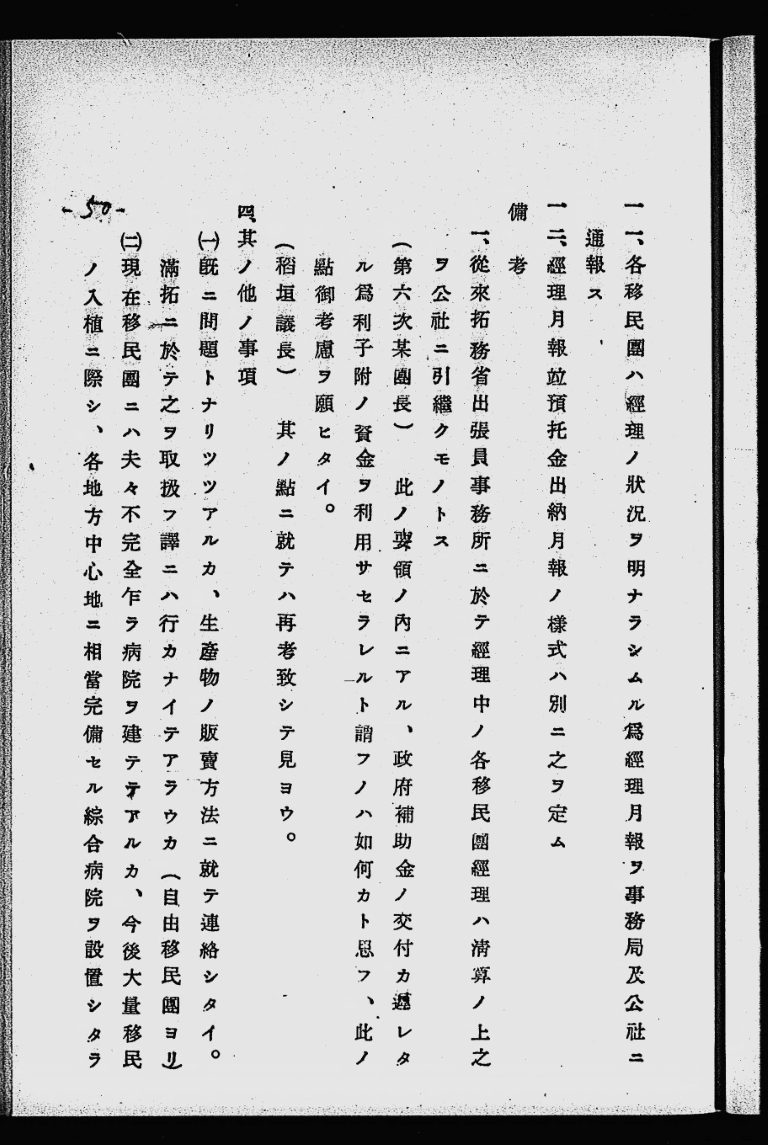 一一、各移民團ハ經理ノ狀況ヲ明ナラシムル爲經理月報ヲ事務局及公社ニ
通報ス
一二、經理月報竝預托金出納月報ノ樣式ハ別ニ之ヲ定ム
備考
一、從來拓務省出張員事務所ニ於テ經理中ノ各移民團經理ハ淸算ノ上之
ヲ公社ニ引繼クモノトス
（第六次某團長） 此ノ要領ノ內ニアル、政府補助金ノ交付カ遲レタ
ル爲利子附ノ資金ヲ利用サセラレルト謂フノハ如何カト思フ、此ノ
點御考慮ヲ願ヒタイ。
（稻垣議長） 其ノ點ニ就テハ再考致シテ見ヨウ。
四、其ノ他ノ事項
㈠旣ニ問題トナリツツアルカ、生產物ノ販賣方法ニ就テ連絡シタイ。
滿拓ニ於テ之ヲ取扱フ譯ニハ行カナイテアラウカ（自由移民團ヨリ）
㈡現在移民團ニハ夫々不完全乍ラ病院ヲ建テテアルカ、今後大量移民
ノ入植ニ際シ、各地方中心地ニ相當完備セル綜合病院ヲ設置シタラ
-50-